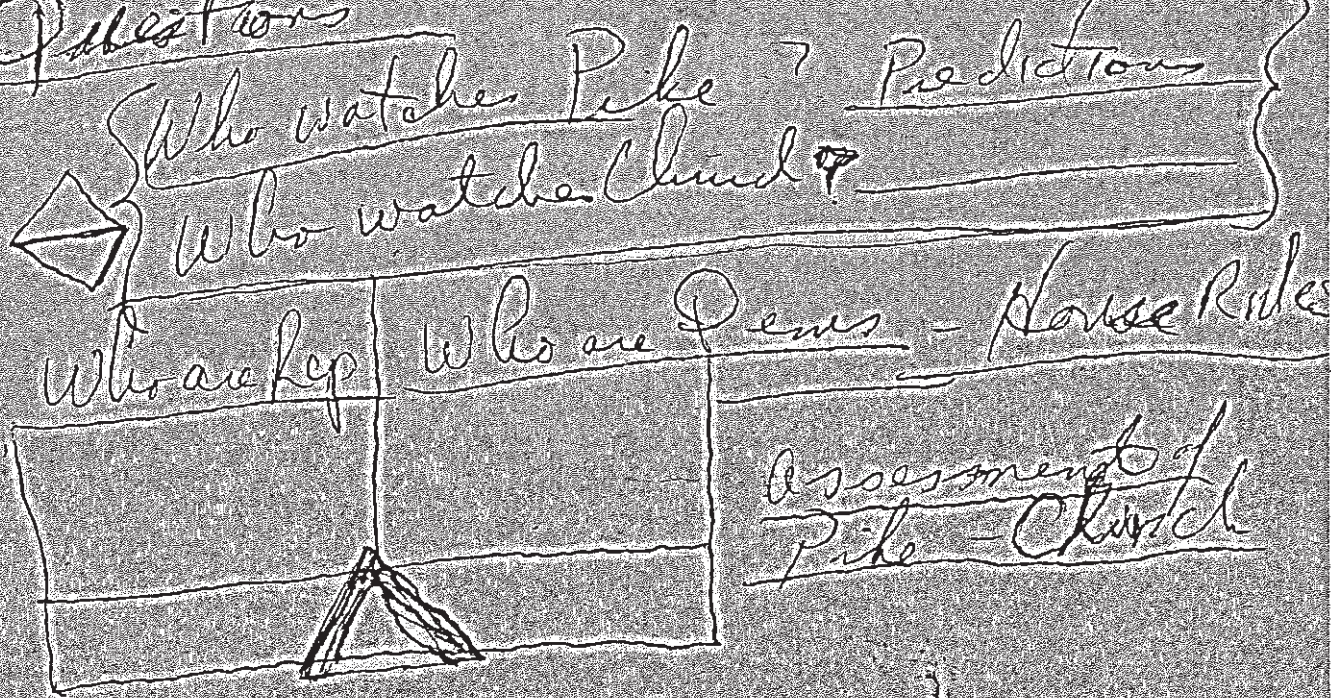 Questions
Who watches Pike ? Predictions
Who watches Church ?
Who are Rep Who are Dems - House Rules
assessment of
Pike - Church